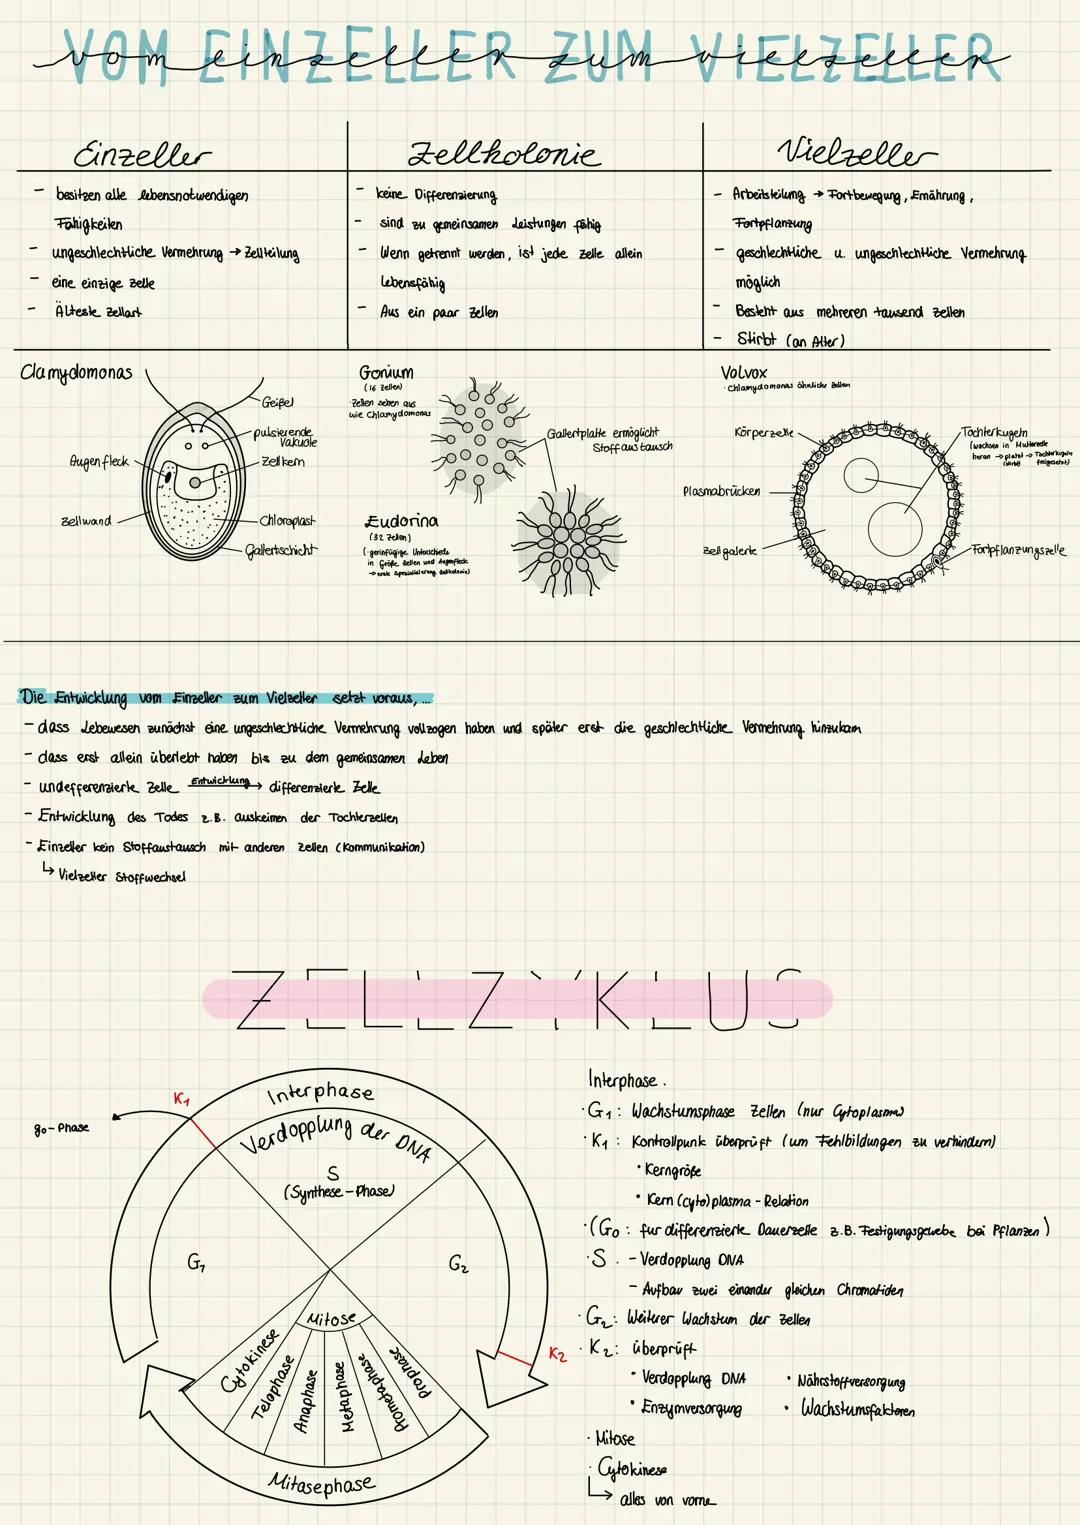 VOM EINZELLER ZUM VIELZELLER
vom einzeller zum vielzeller
Einzeller
- besitzen alle lebensnotwendigen
Fähigkeiten
- ungeschlechtliche Vermehrung → Zellteilung
- eine einzige Zelle
- Älteste Zellart
Zellkolonie
- keine Differenzierung
- sind zu gemeinsamen Leistungen fähig
- Wenn getrennt werden, ist jede Zelle allein
Lebensfähig
- Aus ein paar Zellen
Vielzeller
- Arbeitsteilung → Fortbewegung, Ernährung,
Fortpflanzung
- geschlechtliche u. ungeschlechtliche Vermehrung
möglich
- Besteht aus mehreren tausend Zellen
- Stirbt (an Alter)
Clamydomonas
Geißel
pulsierende
Vakuole
Augenfleck
Zellkern
Zellwand
Chloroplast
Gallertschicht
Gonium
(16 Zellen)
· Zellen sehen aus
wie Chlamydomonas
Gallertplatte ermöglicht
Stoffaustausch
Eudorina
(32 Zellen)
(· geringfügige Unterschiede
in Größe Zellen und Augenflecke
→ erste Spezialisierung Zellkolonie)
Volvox
· Chlamydomonas ähnliche Zellen
Körperzelle
Tochterkugeln
(wachsen in Mutterzelle
heran → platzt → Tochterkugeln
(stirbt) freigesetzt)
Plasmabrücken
Zellgalerte
Fortpflanzungszelle
Die Entwicklung vom Einzeller zum Vielzeller setzt voraus, ...
- dass Lebewesen zunächst eine ungeschlechtliche Vermehrung vollzogen haben und später erst die geschlechtliche Vermehrung hinzukam
- dass erst allein überlebt haben bis zu dem gemeinsamen Leben
- undefferenzierte Zelle Entwicklung → differenzierte Zelle
- Entwicklung des Todes z.B. auskeimen der Tochterzellen
- Einzeller kein Stoffaustausch mit anderen Zellen (Kommunikation)
↳ Vielzeller Stoffwechsel
ZELLZYKLUS
K1
g0-Phase
Interphase
Verdopplung der DNA
S
(Synthese-Phase)
G1
G2
Mitose
Cytokinese
Telophase
Anaphase
Metaphase
Prometaphase
Prophase
K2
Mitasephase
Interphase.
· G1: Wachstumsphase Zellen (nur Cytoplasma)
· K1: Kontrollpunk überprüft (um Fehlbildungen zu verhindern)
• Kerngröße
• Kern(cyto)plasma-Relation
· (G0: für differenzierte Dauerzelle z.B. Festigungsgewebe bei Pflanzen)
· S. - Verdopplung DNA
- Aufbau zwei einander gleichen Chromatiden
· G2: Weiterer Wachstum der Zellen
· K2: überprüft
• Verdopplung DNA • Nährstoffversorgung
• Enzymversorgung • Wachstumsfaktoren
· Mitose
· Cytokinese
↳ alles von vorne